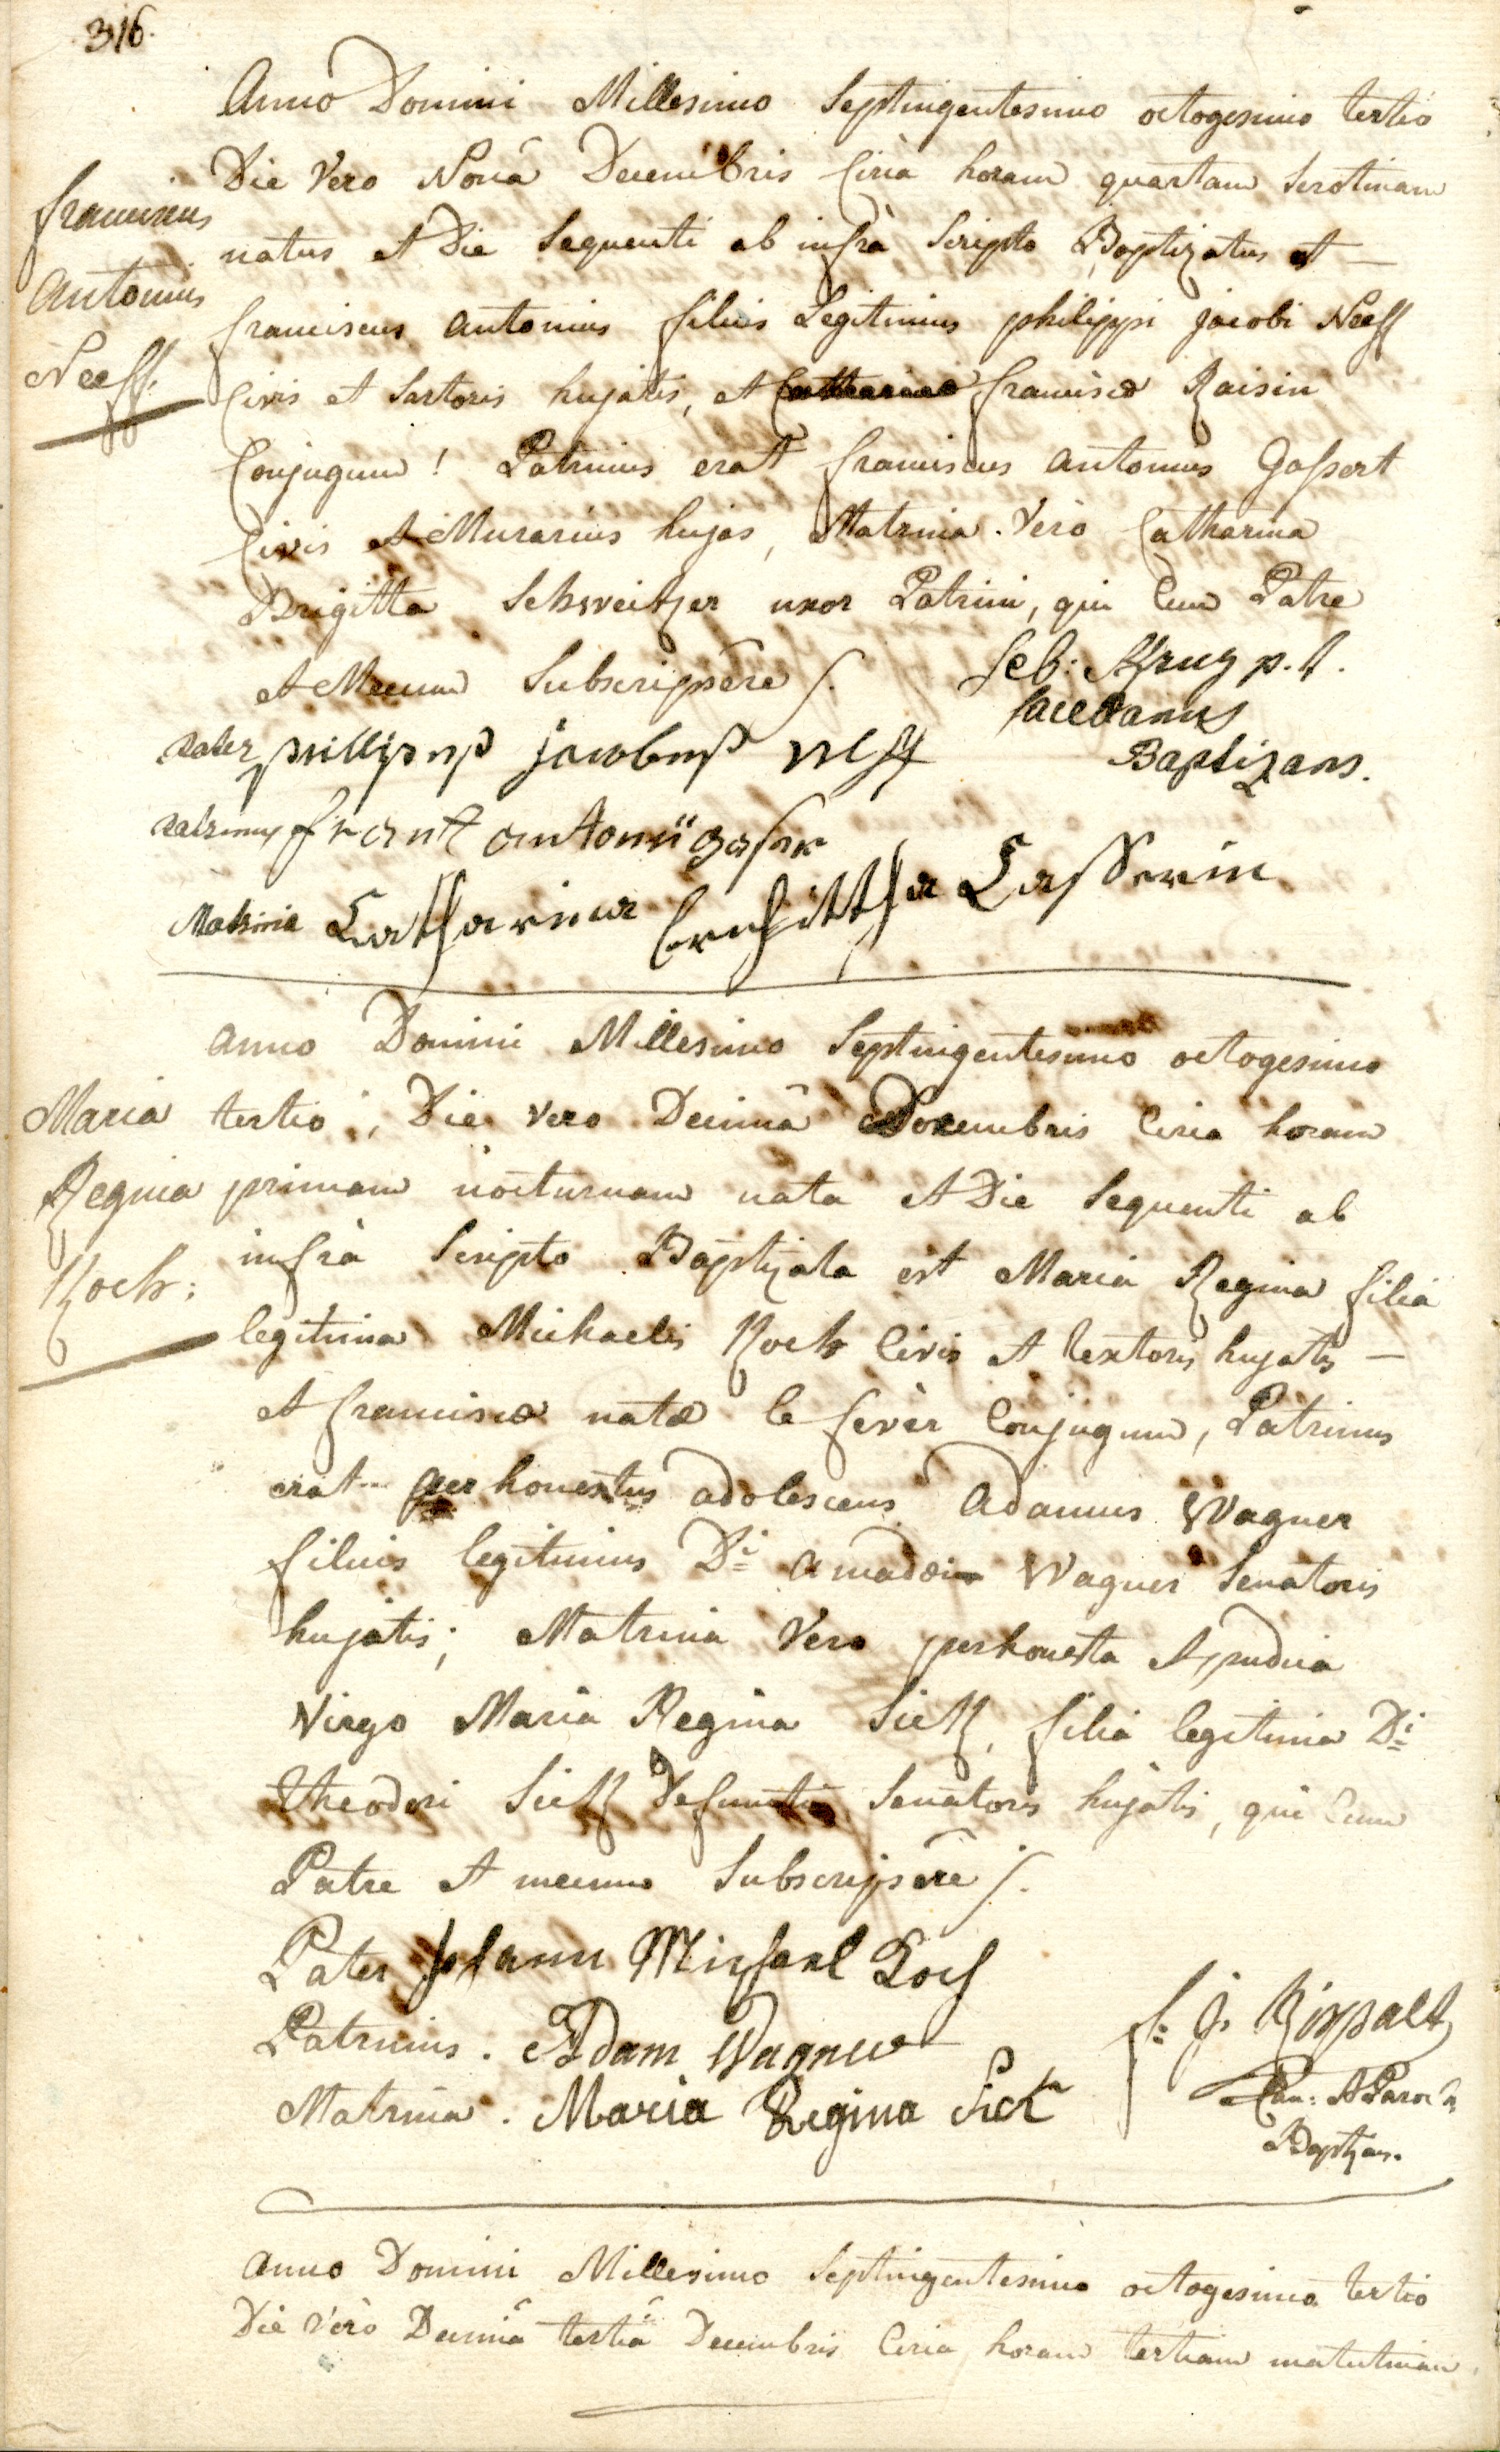 316.
Anno Domini Millesimo Septingentesimo octogesimo tertio
Die Vero Nonâ Decembris Circa horam quartam Serotinam
franciscus
natus et Die Sequenti ab infrà Scripto Baptizatus est —
Antonius
franciscus Antonius filius Legitimus philippi jacobi Neeff
Neeff.
Civis et Sartoris hujatis, et franciscæ Raisin
Conjugum! Patrinus erat franciscus Antonius Gassert
Civis et Murarius hujas, Matrina Verò Catharina
Brigitta Schweitzer uxor Patrini, qui Cum Patre
et Mecum Subscripsêre ∫.
Seb: Krug p.t.
Sacellanus
Baptizans.
pater phillipus jacobus neff
patrinus frant antoni gaser
Matrina Catharina brigittha Casserin
Anno Domini Millesimo Septingentesimo octogesimo
Maria
tertio, Die vero Decimâ Decembris Circa horam
Regina
primam nocturnam nata et Die Sequenti ab
infrà Scripto Baptizata est Maria Regina filia
Koch:
legitima Michaelis Koch Civis et textoris hujatis —
et franciscæ natæ le fevèr Conjugum, Patrinus
erat perhonestus adolescens Adamus Wagner
filius legitimus Di Amadei Wagner Senatoris
hujatis; Matrina Vero perhonesta et pudica
Virgo Maria Regina Sick, filia legitima Di
Theodori Sick Defuncti Senatoris hujatis, qui Cum
Patre et mecum Subscripsêre ∫.
Pater Johann Michael Koch
Patrinus. Adam Wagner
Matrina. Maria Regina Sick
Can: et Paroch
Baptizans.
Anno Domini Millesimo Septingentesimo octogesimo tertio
Die Verò Decimâ tertiâ Decembris Circa horam tertiam matutinam